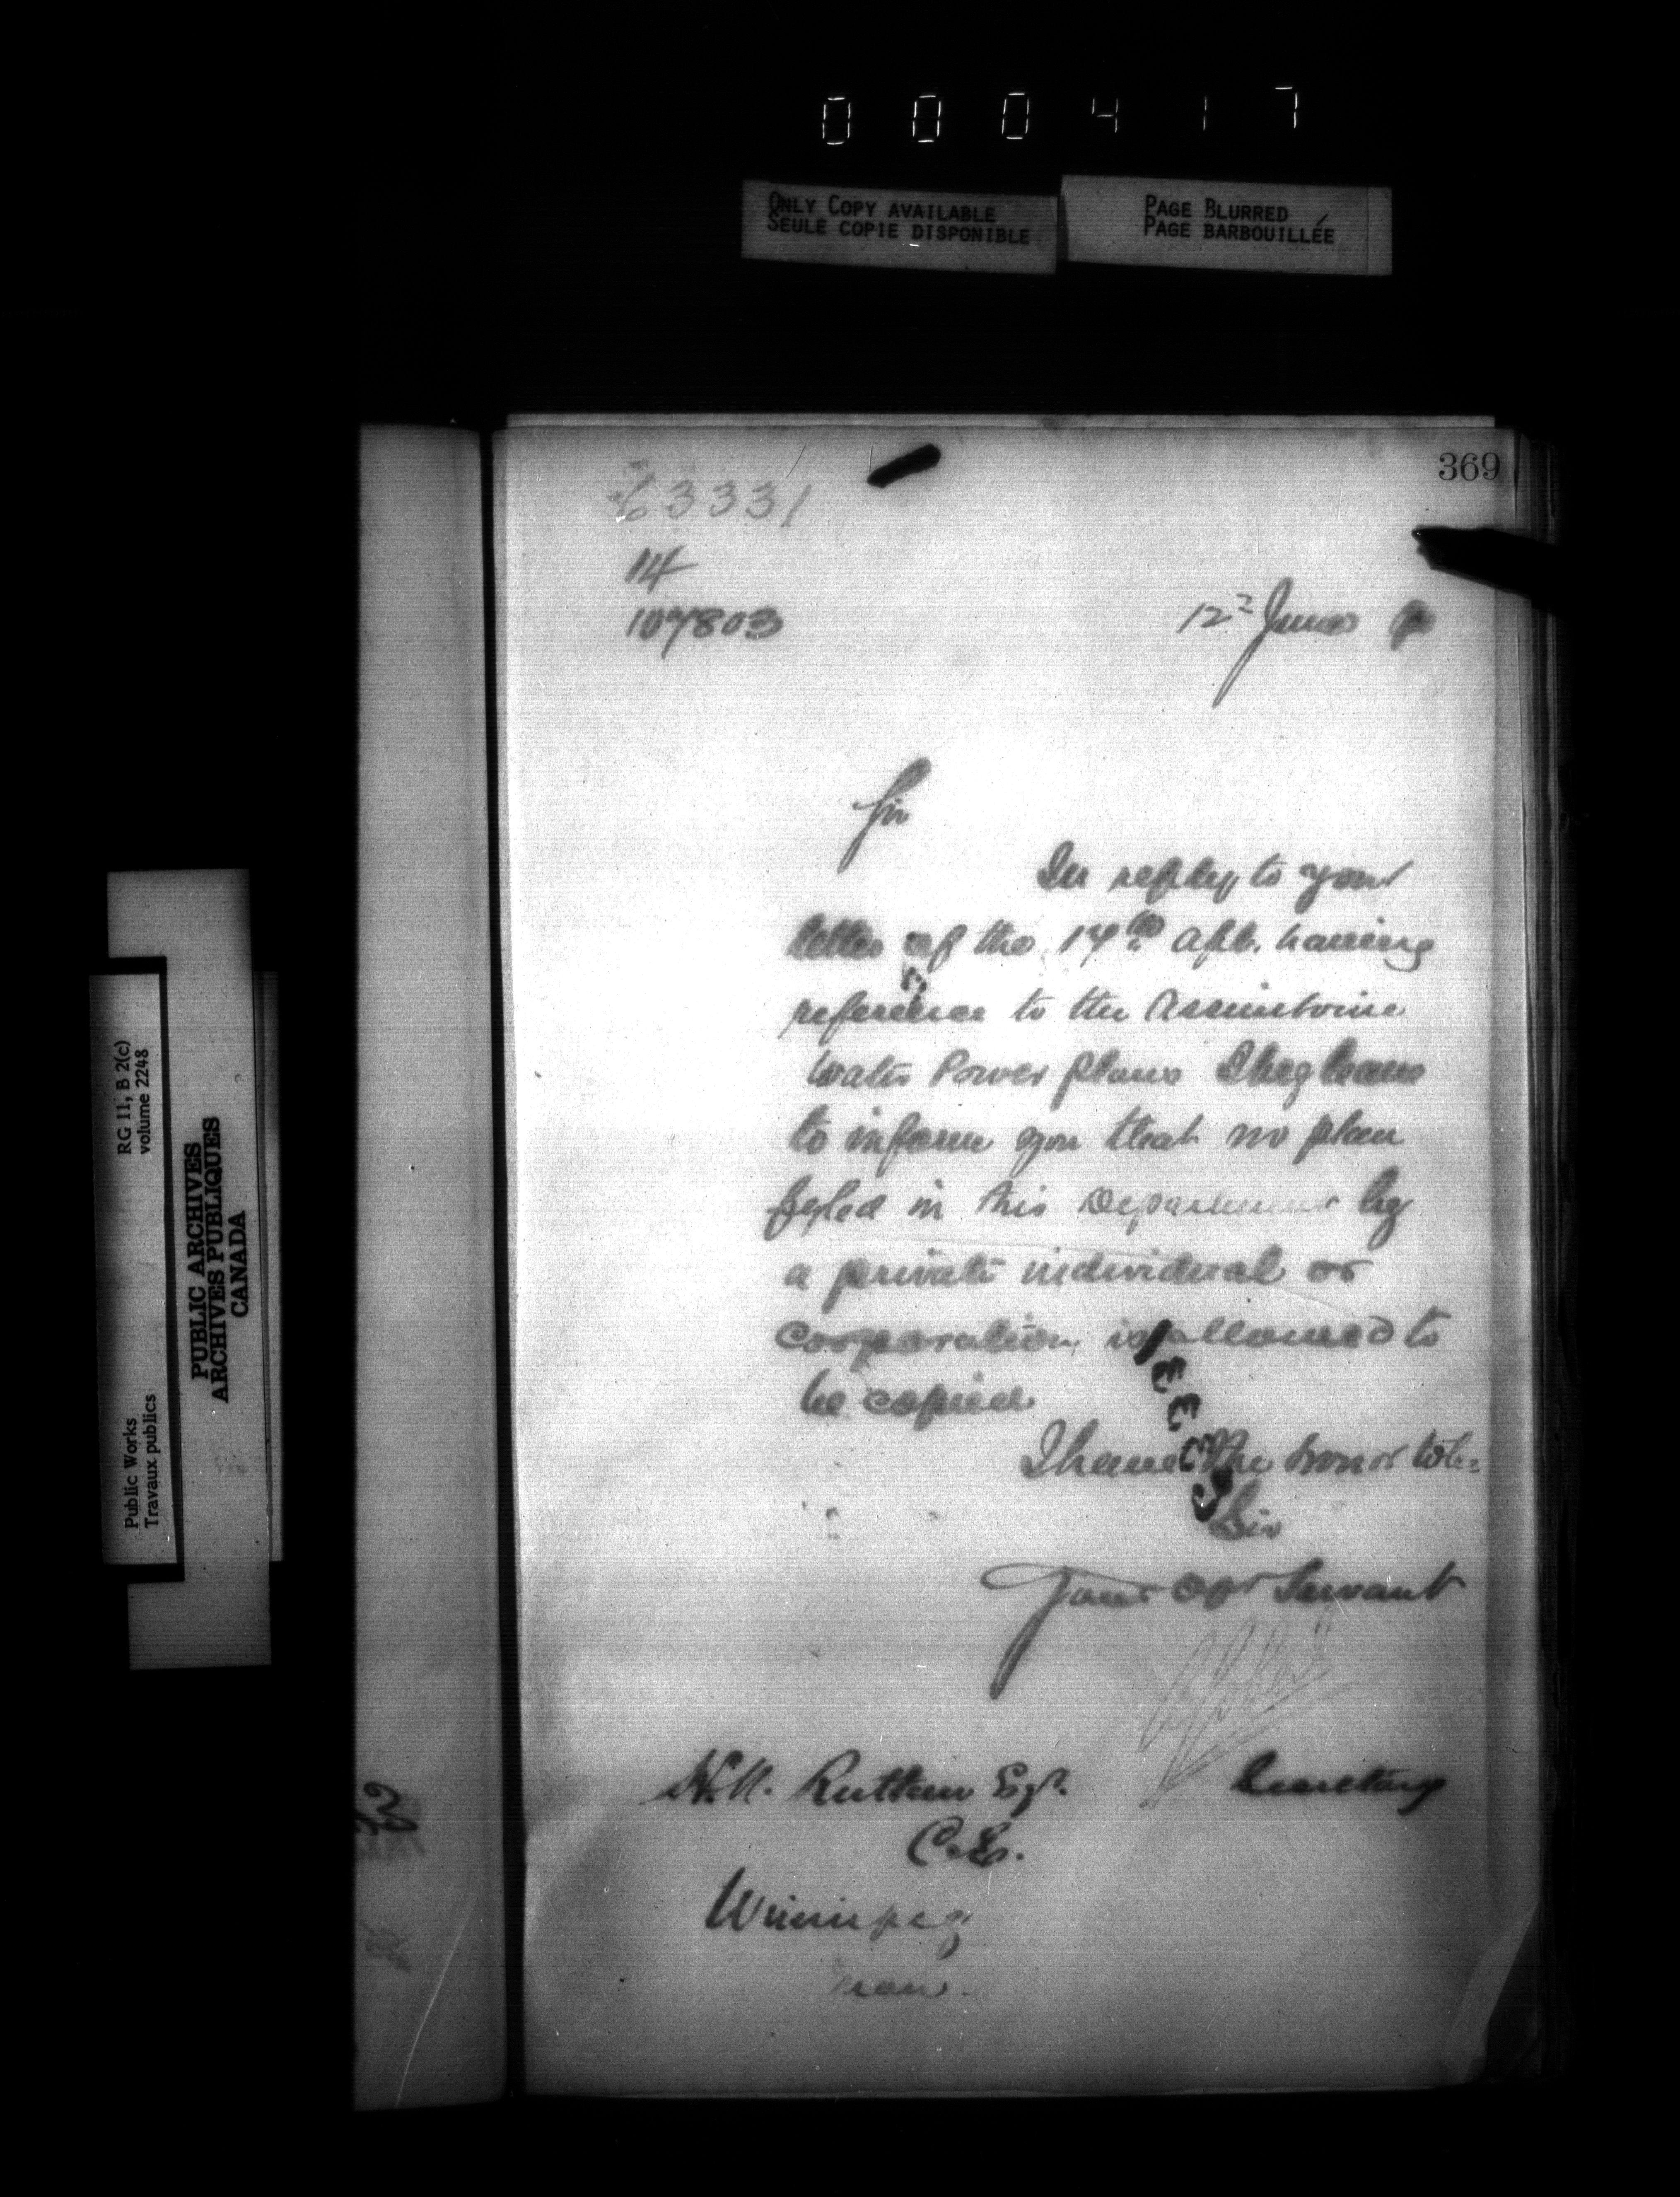 000417
ONLY COPY AVAILABLE
SEULE COPIE DISPONIBLE
PAGE BLURRED
PAGE BARBOUILLÉE
369
63331
14
107803
12 June 90
Sir
In reply to your
letter of the 14th Apl. having
reference to the Assiniboine
Water Power plans I beg leave
to inform you that no plan
fyled in this Department by
a private individual or
corporation, is allowed to
be copied
I have the honor to be
Sir
Your Obt Servant
Secretary
H.N. Ruttan Esqr.
C.E.
Winnipeg
Man.
RG 11, B 2(c)
volume 2248
Public Works
Travaux publics
PUBLIC ARCHIVES
ARCHIVES PUBLIQUES
CANADA